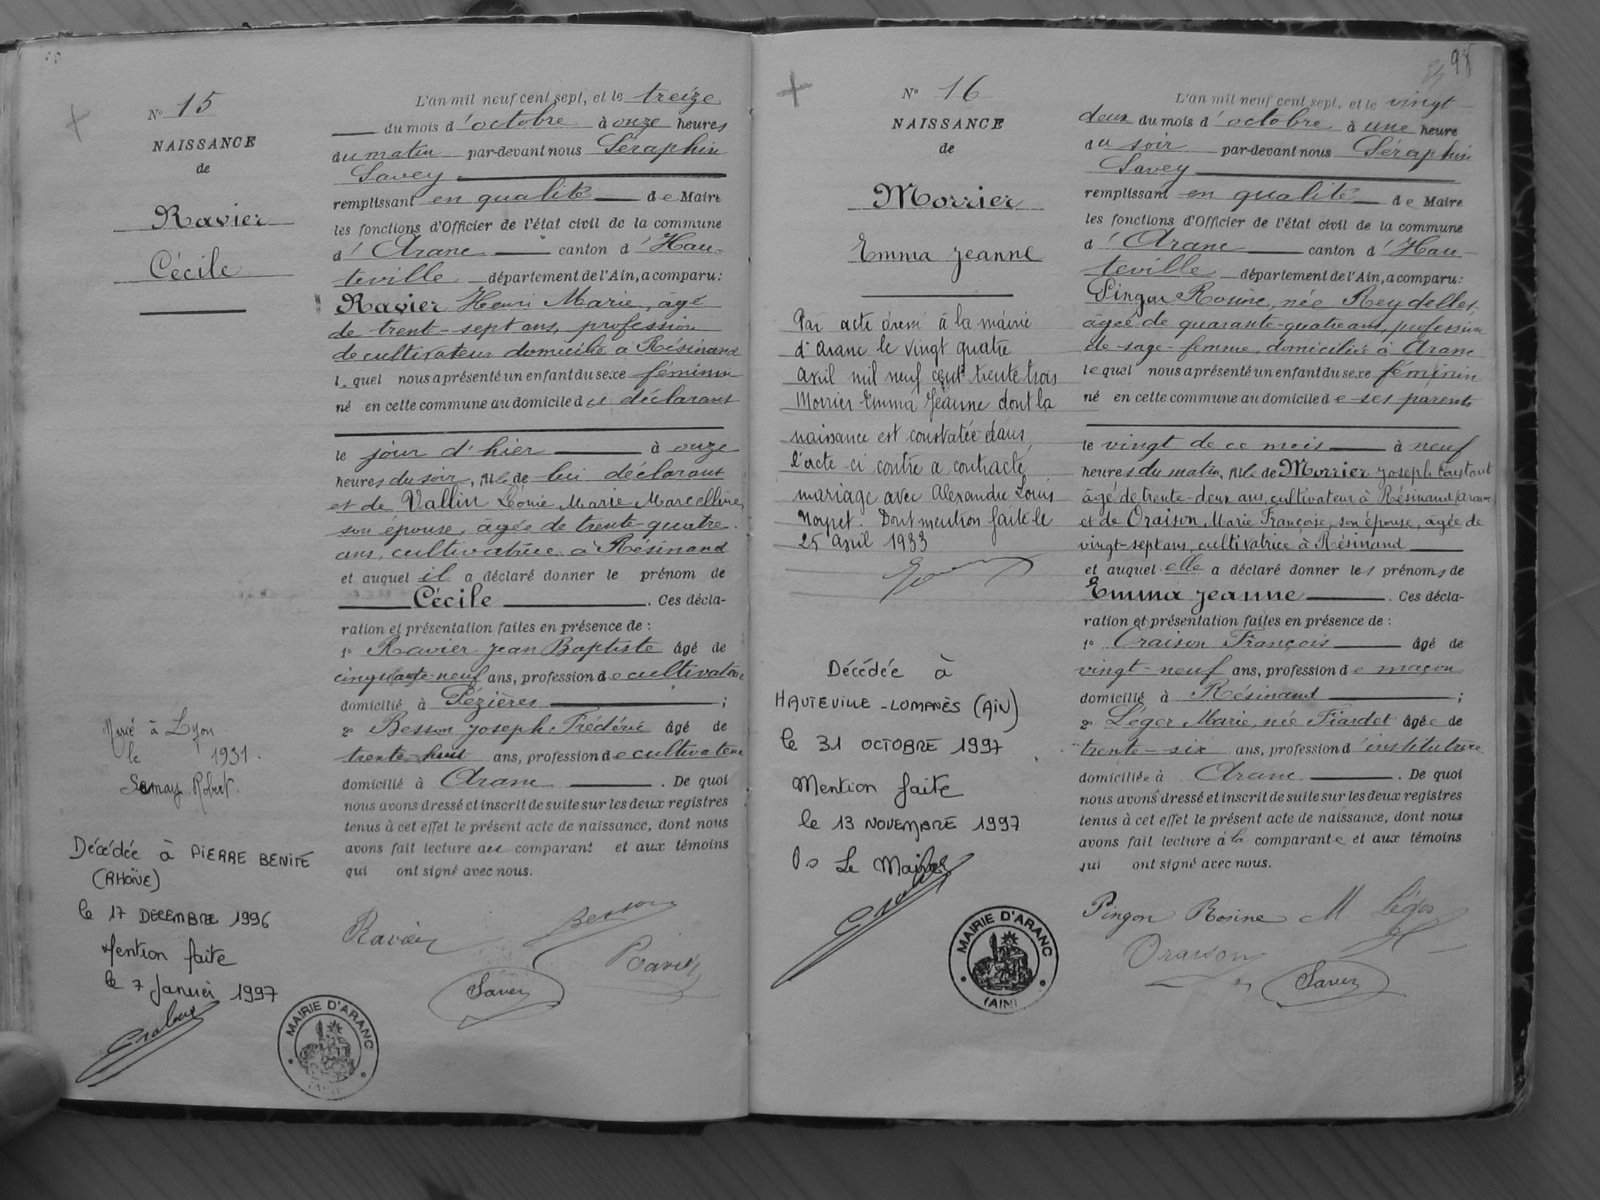 Nº 15
NAISSANCE
de
Ravier
Cécile
L'an mil neuf cent sept, et le treize
du mois d'octobre à onze heures
du matin par-devant nous Séraphin
Savey
remplissant en qualité de Maire
les fonctions d'Officier de l'état civil de la commune
d'Aranc canton d'Hau-
teville département de l'Ain, a comparu:
Ravier Henri Marie, âgé
de trente-sept ans, profession
de cultivateur domicilié à Résinand
lequel nous a présenté un enfant du sexe féminin
né en cette commune au domicile du déclarant
le jour d'hier à onze
heures du soir, fille de lui déclarant
et de Vallin Léonie Marie Marcelline,
son épouse, âgée de trente-quatre
ans, cultivatrice à Résinand
et auquel il a déclaré donner le prénom de
Cécile. Ces décla-
ration et présentation faites en présence de :
1º Ravier Jean Baptiste âgé de
cinquante-neuf ans, profession de cultivateur
domicilié à Pézières ;
2º Besson Joseph Frédéric âgé de
trente huit ans, profession de cultivateur
domicilié à Aranc. De quoi
nous avons dressé et inscrit de suite sur les deux registres
tenus à cet effet le présent acte de naissance, dont nous
avons fait lecture au comparant et aux témoins
qui ont signé avec nous.
Ravier Besson
Ravier
Savey
Marié à Lyon
le 1931.
Robert.
Décédée à PIERRE BENITE
(RHÔNE)
le 17 DECEMBRE 1996
Mention faite
le 7 Janvier 1997
MAIRIE D'ARANC
(AIN)
98
Nº 16
NAISSANCE
de
Morrier
Emma Jeanne
Par acte dressé à la mairie
d'Aranc le vingt quatre
avril mil neuf cent trente trois
Morrier Emma Jeanne dont la
naissance est constatée dans
l'acte ci contre a contracté
mariage avec Alexandre Louis
Noyret. Dont mention faite le
25 avril 1933
Décédée à
HAUTEVILLE-LOMPNÈS (AIN)
le 31 OCTOBRE 1997
Mention faite
le 13 NOVEMBRE 1997
Le Maire
MAIRIE D'ARANC
(AIN)
L'an mil neuf cent sept, et le vingt
deux du mois d'octobre à une heure
du soir par-devant nous Séraphin
Savey
remplissant en qualité de Maire
les fonctions d'Officier de l'état civil de la commune
d'Aranc canton d'Hau-
teville département de l'Ain, a comparu:
Pingon Rosine, née Reydellet,
âgée de quarante-quatre ans, profession
de sage-femme, domiciliée à Aranc
lequel nous a présenté un enfant du sexe féminin
né en cette commune au domicile de ses parents
le vingt de ce mois à neuf
heures du matin, fille de Morrier Joseph Constant
âgé de trente-deux ans, cultivateur à Résinand, Aranc,
et de Oraison, Marie Françoise, son épouse, âgée de
vingt-sept ans, cultivatrice à Résinand
et auquel elle a déclaré donner les prénoms de
Emma Jeanne. Ces décla-
ration et présentation faites en présence de :
1º Oraison François âgé de
vingt-neuf ans, profession de maçon
domicilié à Résinand ;
2º Léger Marie, née Fiardet âgée de
trente-six ans, profession d'institutrice
domiciliée à Aranc. De quoi
nous avons dressé et inscrit de suite sur les deux registres
tenus à cet effet le présent acte de naissance, dont nous
avons fait lecture à la comparante et aux témoins
qui ont signé avec nous.
Pingon Rosine M Léger
Oraison
Savey